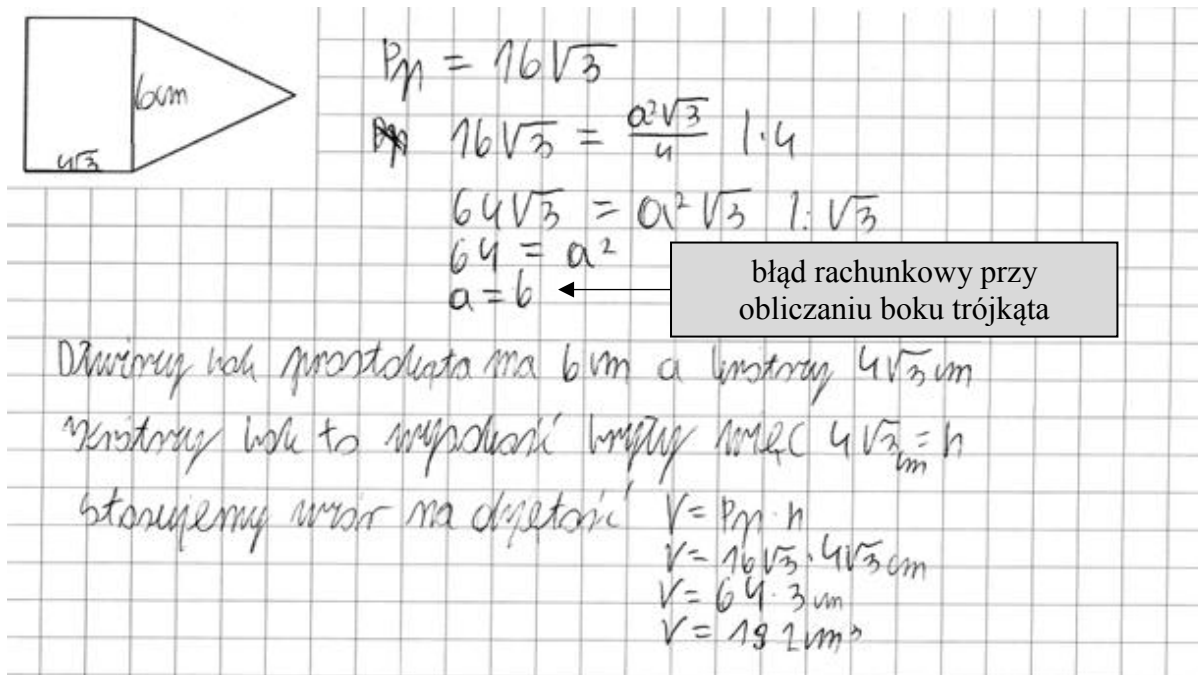 6cm
4√3
Pp = 16√3
16√3 = a²√3/4 |·4
64√3 = a²√3 |:√3
64 = a²
a = 6
błąd rachunkowy przy
obliczaniu boku trójkąta
Dłuższy bok prostokąta ma 6 cm a krótszy 4√3 cm
Krótszy bok to wysokość bryły więc 4√3 cm = h
Stosujemy wzór na objętość V = Pp · h
V = 16√3 · 4√3 cm
V = 64 · 3 cm
V = 192 cm³